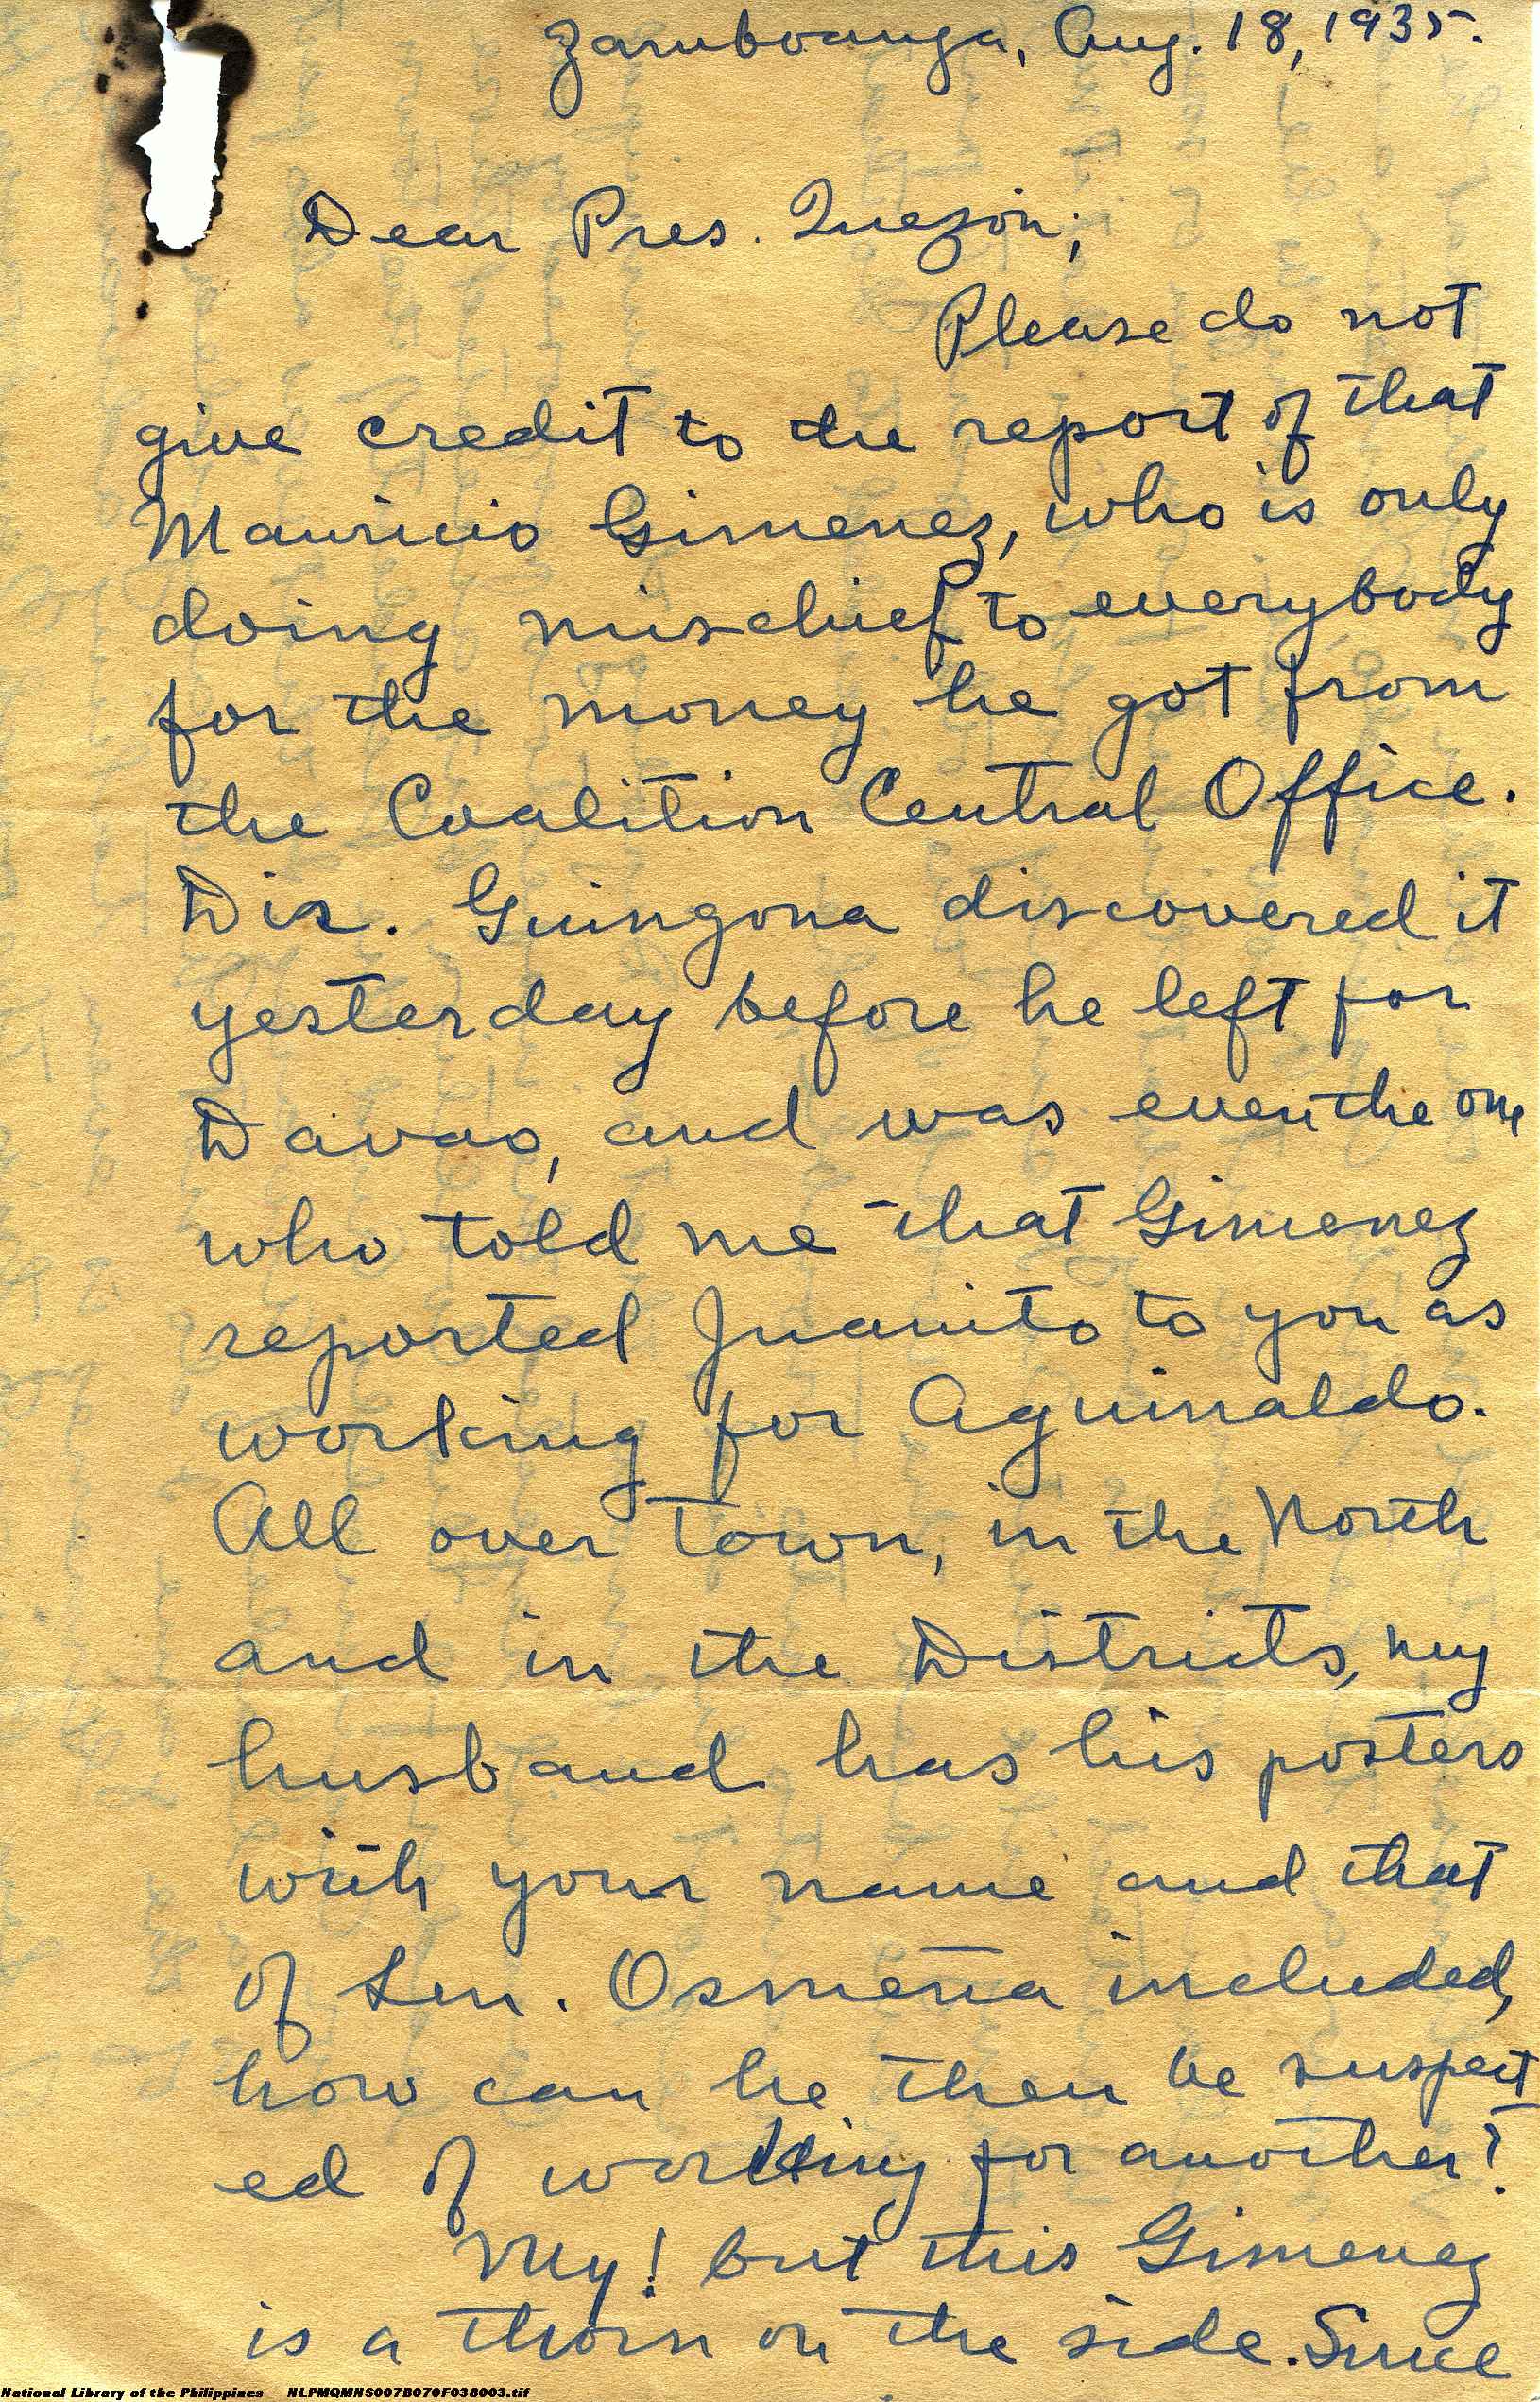 Zamboanga, Aug. 18, 1935.
Dear Pres. Quezon;
Please do not
give credit to the report of that
Mauricio Gimenez, who is only
doing mischief to everybody
for the money he got from
the Coalition Central Office.
Dir. Guingona discovered it
yesterday before he left for
Davao, and was even the one
who told me that Gimenez
reported Juanito to you as
working for Aguinaldo.
All over town, in the North
and in the Districts, my
husband has his posters
with your name and that
of Sen. Osmeña included,
how can he then be suspect
ed of working for another?
My! but this Gimenez
is a thorn on the side. Since
National Library of the Philippines NLPMQMNS007B070F038003.tif